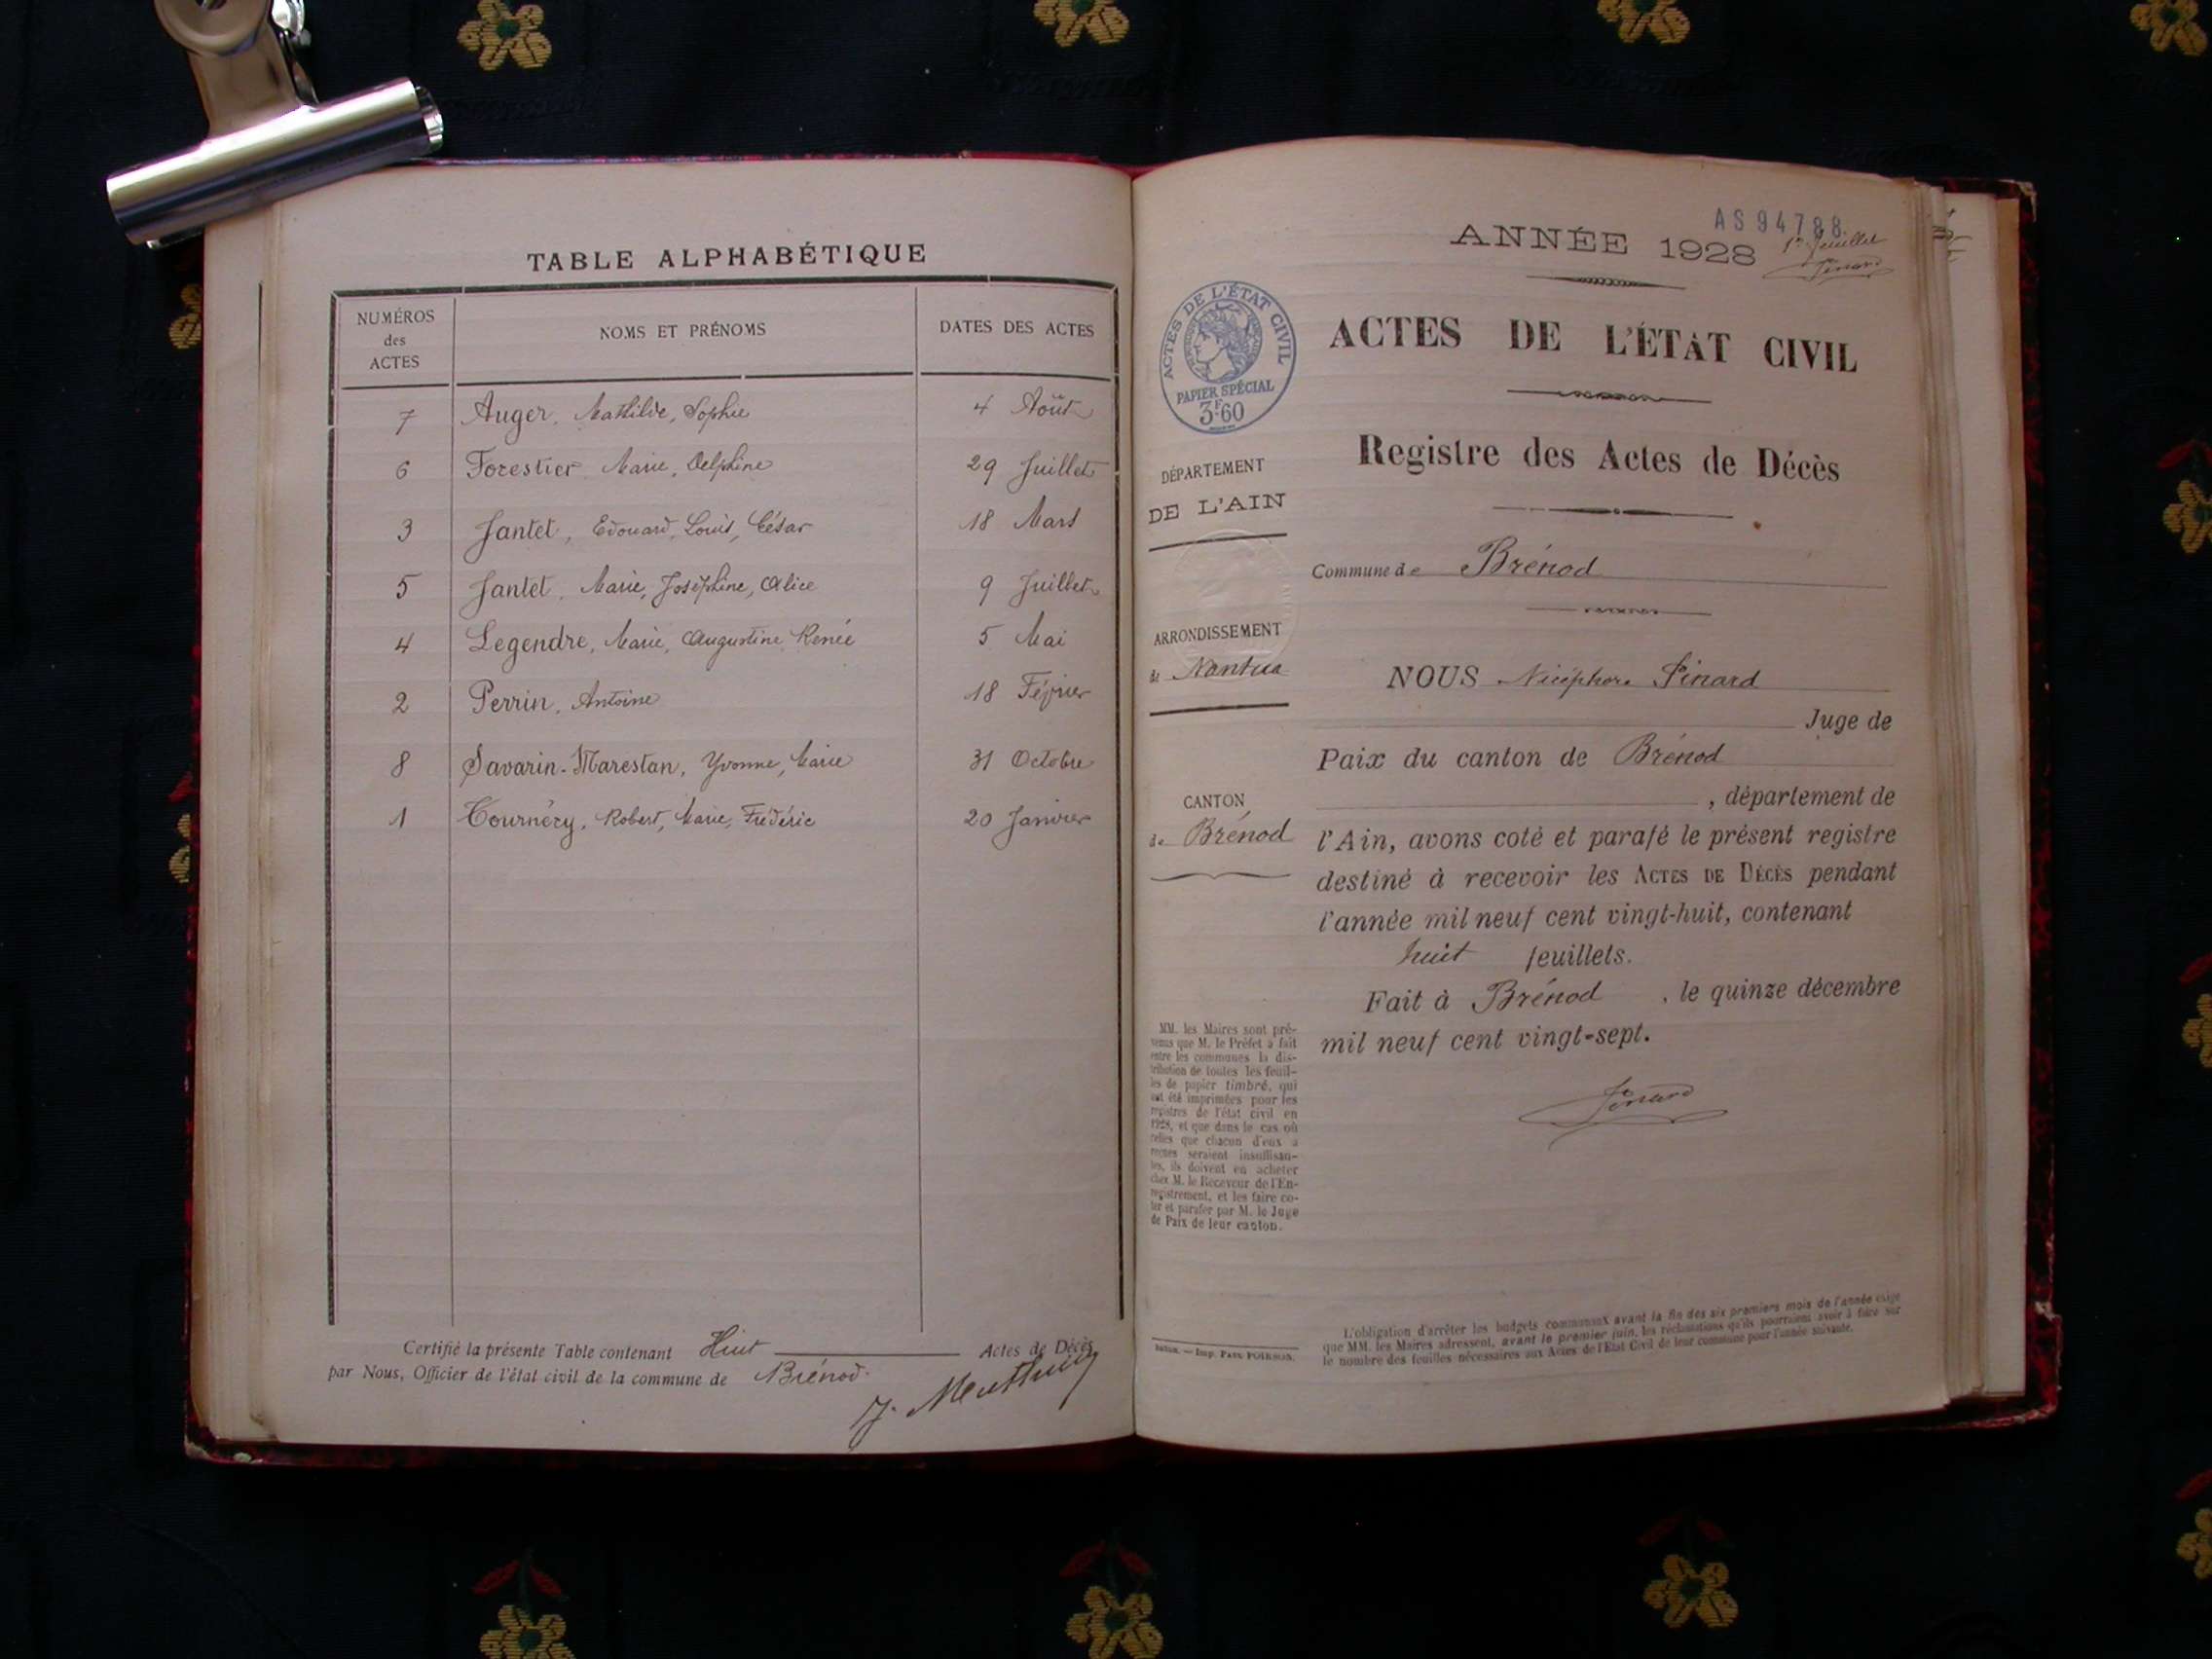 TABLE ALPHABÉTIQUE
NUMÉROS
des
ACTES
NOMS ET PRÉNOMS
DATES DES ACTES
7 Auger, Mathilde, Sophie 4 Août
6 Forestier Marie, Delphine 29 Juillet
3 Jantet, Edouard, Louis, César 18 Mars
5 Jantet, Marie, Joséphine, Alice 9 Juillet
4 Legendre, Marie, Augustine Renée 5 Mai
2 Perrin, Antoine 18 Février
8 Savarin-Marestan, Yvonne, Marie 31 Octobre
1 Tournéry, Robert, Marie, Frédéric 20 Janvier
Certifié la présente Table contenant Huit Actes de Décès
par Nous, Officier de l'état civil de la commune de Brénod.
AS94788
ANNÉE 1928 1er feuillet
ACTES DE L'ÉTAT CIVIL
PAPIER SPÉCIAL
3F60
ACTES DE L'ÉTAT CIVIL
Registre des Actes de Décès
DÉPARTEMENT
DE L'AIN
Commune de Brénod
ARRONDISSEMENT
de Nantua
NOUS Nicéphore Pinard
Juge de
Paix du canton de Brénod
, département de
CANTON
de Brénod
l'Ain, avons coté et parafé le présent registre
destiné à recevoir les ACTES DE DÉCÈS pendant
l'année mil neuf cent vingt-huit, contenant
huit feuillets.
Fait à Brénod , le quinze décembre
mil neuf cent vingt-sept.
Pinard
MM. les Maires sont pré-
venus que M. le Préfet a fait
entre les communes la dis-
tribution de toutes les feuil-
les de papier timbré, qui
ont été imprimées pour les
registres de l'état civil en
1928, et que dans le cas où
celles que chacun d'eux a
reçues seraient insuffisan-
tes, ils doivent en acheter
chez M. le Receveur de l'En-
registrement, et les faire co-
ter et parafer par M. le Juge
de Paix de leur canton.
Imp. Paul POIRSON.
L'obligation d'arrêter les budgets communaux avant la fin des six premiers mois de l'année exige
que MM. les Maires adressent, avant le premier juin, les réclamations qu'ils pourraient avoir à faire sur
le nombre des feuilles nécessaires aux Actes de l'Etat Civil de leur commune pour l'année suivante.